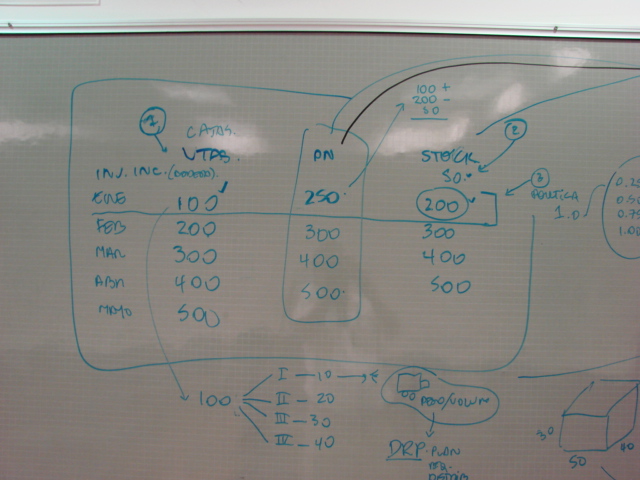 100 +
200 -
50
1
CAJAS.
VTAS.
PN
2
STOCK
INV. INC. (000000)
50.
ENE 100 250. 200
3
POLITICA
1.0
0.25
0.50
0.75
1.00
FEB 200 300 300
MAR 300 400 400
ABR 400 500. 500
MAYO 500
100
I - 10
II - 20
III - 30
IV - 40
PESO/VOLUM
DRP-PLAN
30
50